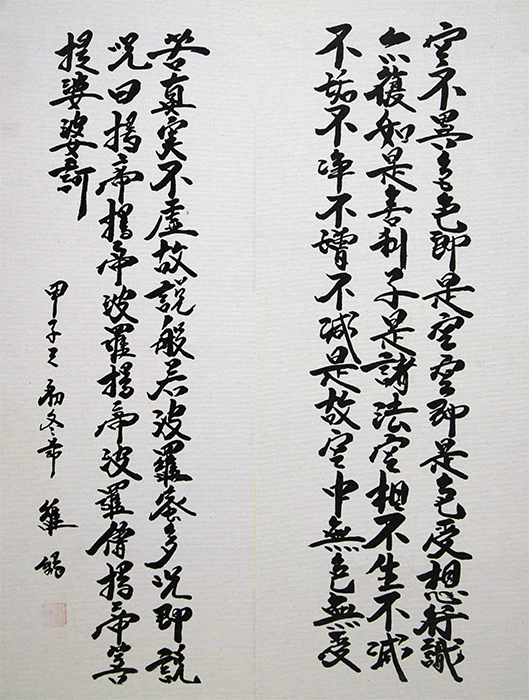 空不異色色即是空空即是色受想行識
亦復如是舍利子是諸法空相不生不滅
不垢不净不增不減是故空中無色無受
苦真実不虛故說般若波羅蜜多呪即說
呪曰揭帝揭帝波羅揭帝波羅僧揭帝菩
提娑婆訶
甲子之初冬